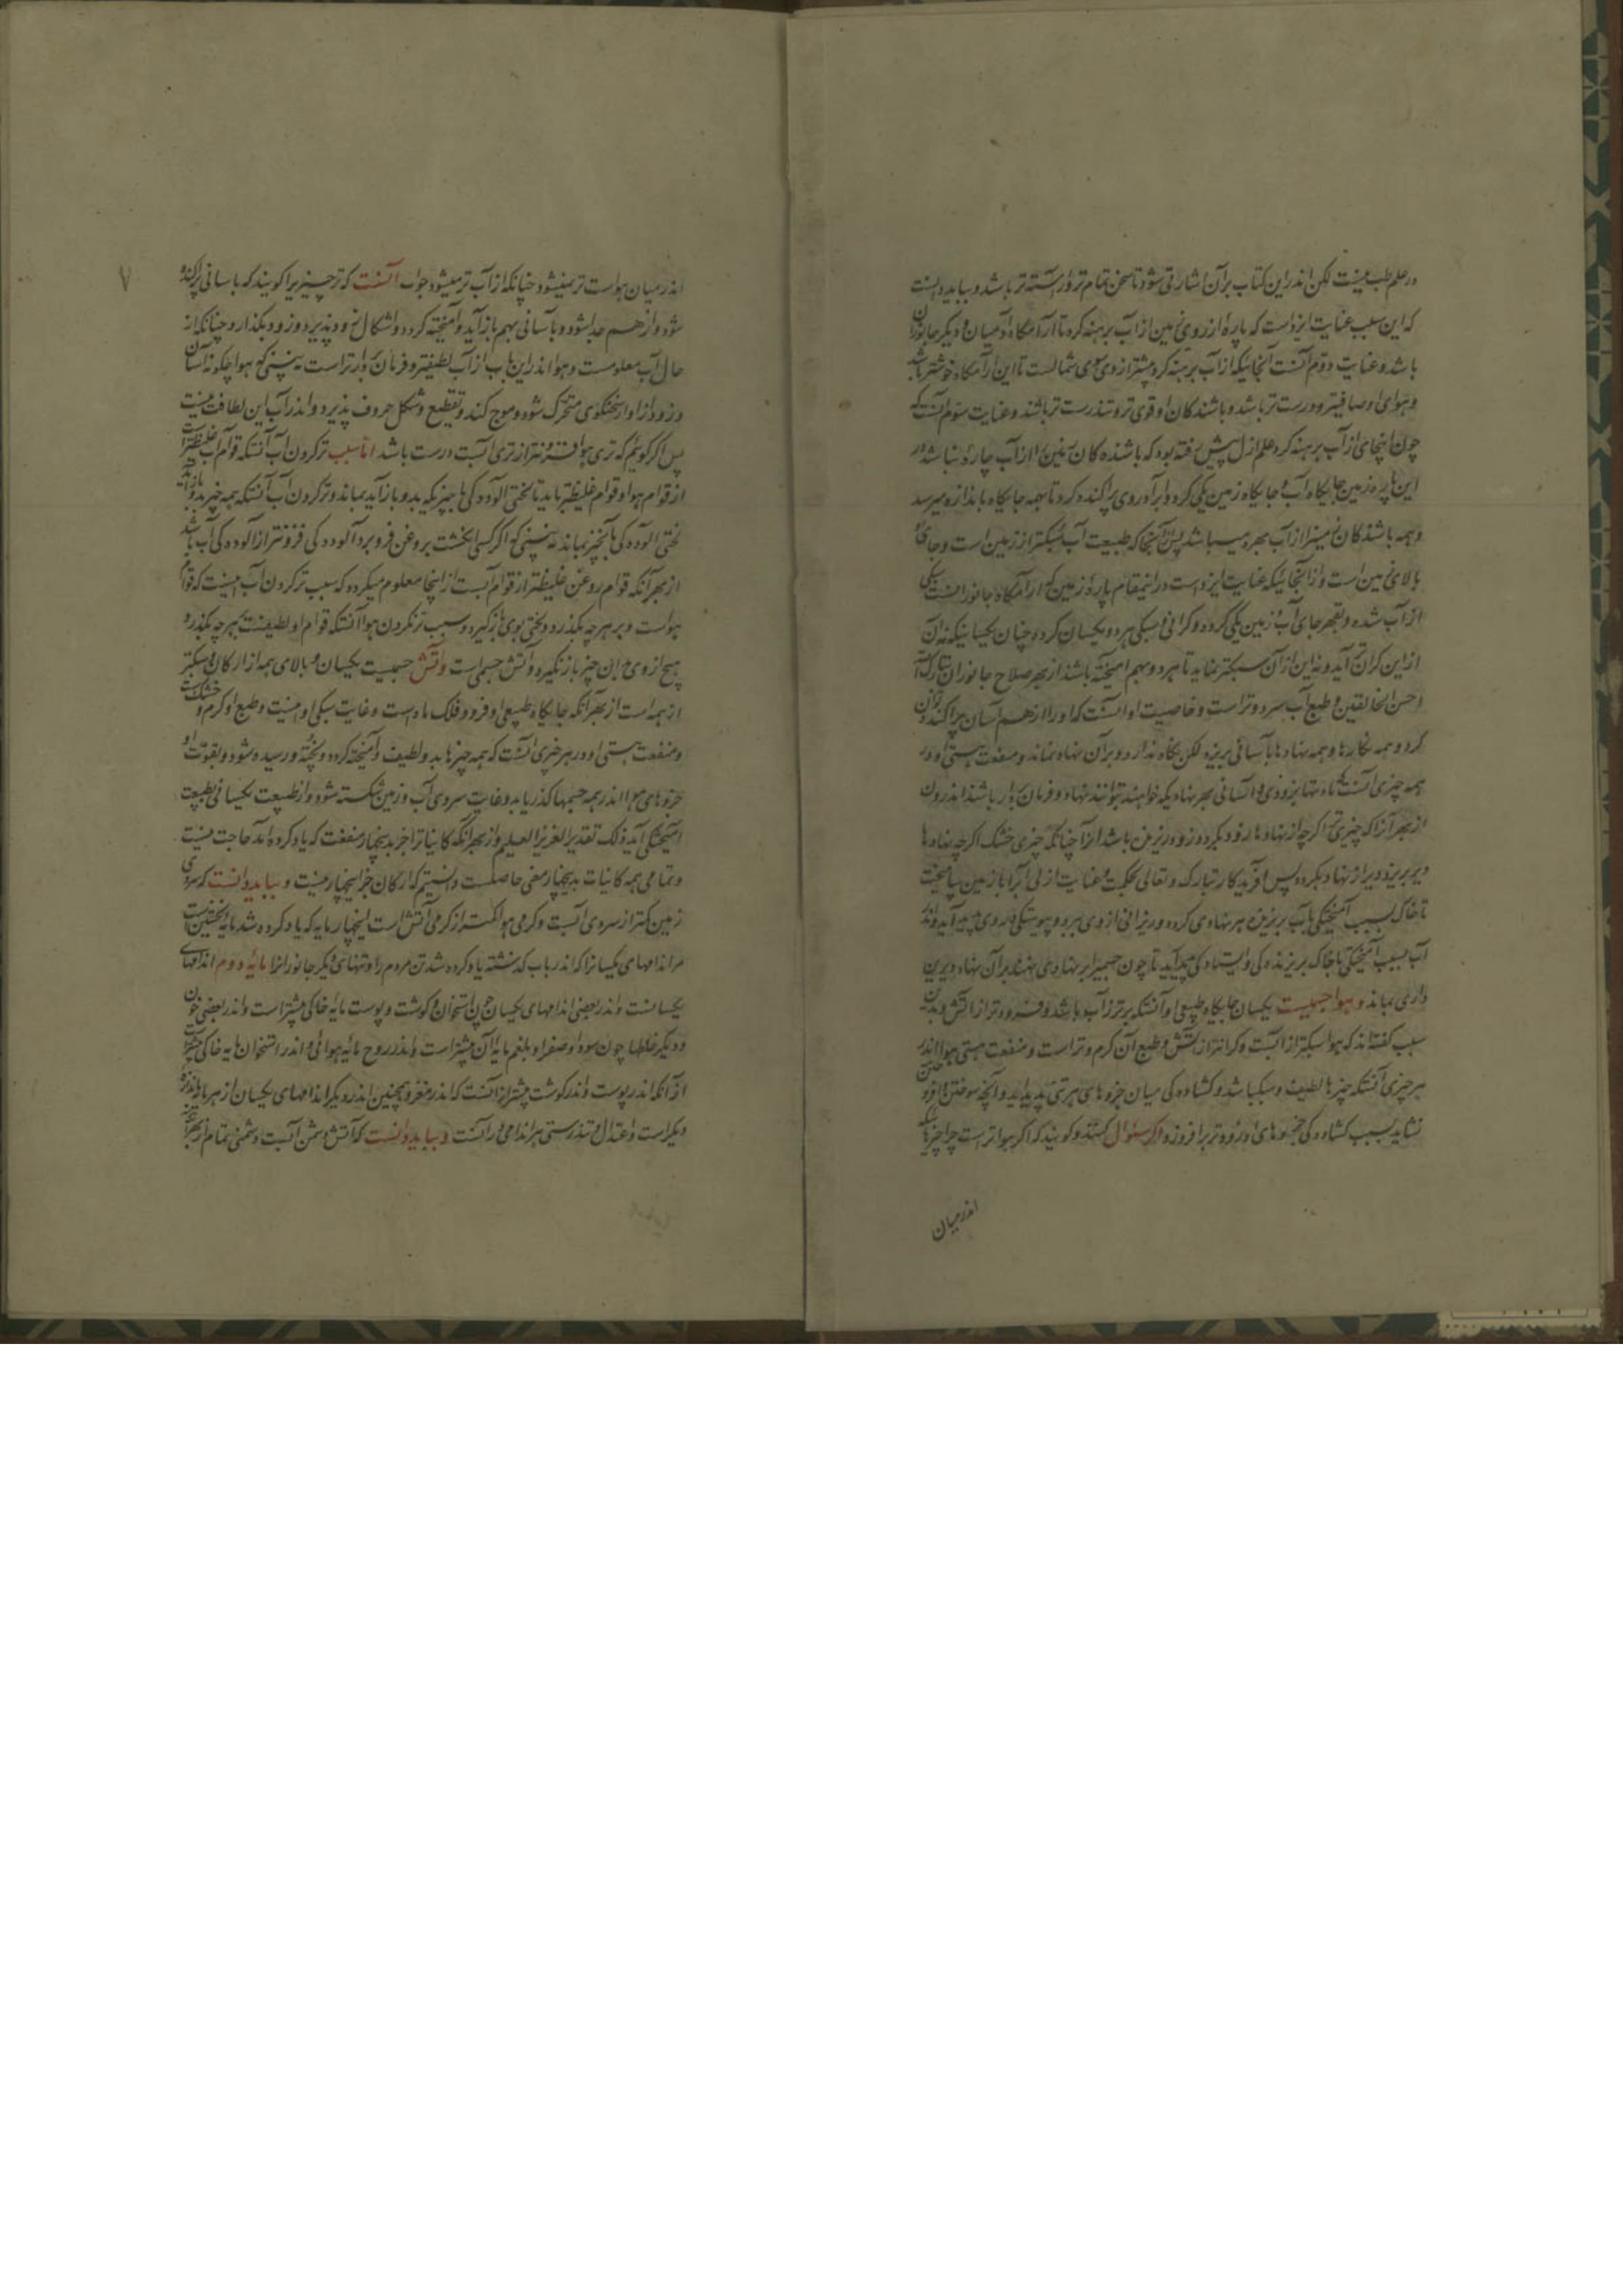 در علم طب نیست لکن اندر این کتاب بر آن اشارتی شود تا سخن تمام تر و آراسته تر باشد و بباید دانست
که این سبب عنایت ایزدست که پاره از روی زمین از آب برهنه کرد تا آرامگاه آدمیان و دیگر جانوران
باشد و عنایت دوم آنست آنجایکه از آب برهنه کرد بیشتر از وی سوی شمالست تا این آرامگاه خوشتر باشد
و هوای او صافیتر و درست تر باشد و باشندکان او قوی تر و تندرست تر باشند و عنایت سوم آنست که
چون اینجای از آب برهنه کرد علم ازل پیش رفته بود که باشنده کان زمین را از آب چاره نباشد در
این پاره زمین جایکاه آب و جایکاه زمین یکی کرد و آب را بر روی پراکنده کرد تا بهمه جایکاه باندازه میرسد
و همه باشندکان زمین از آب بهره میباشد پس آنجا که طبیعت آب سبکتر از زمین است و جای او
بالای زمین است و از آنجائیکه عنایت ایزدست در اینمقام پاره زمین که آرامگاه جانورانست
از آب شده و بقهر جای آب و زمین یکی کرده و کرانی و سبکی هر دو یکسان کرده چنان یکسانیکه نه آن
از این کران تر آید و نه این از آن سبکتر نماید تا هر دو بهم آمیخته باشند از بهر صلاح جانوران تبارک الله
احسن الخالقین و طبع آب سرد و تر است و خاصیت او آنست که او را از هم آسان پراکنده توان
کرد و همه نکارها و همه نهادها بآسانی بریزد لکن نکاه ندارد و بر آن نهاد نماند و منفعت هستی او در
همه چیزی آنست که مادتها بزودی و آسانی بهر نهادیکه خواهند بتوانند نهاد و فرمان بردار باشند اندر آن
از بهر آنرا که چیزی تر اکرچه از نهادها زود بکردد زود ریزنده باشد آنرا چنانکه چیزی خشک اکرچه نهادها
دیر پذیرد دیر از نهاد بکردد پس آفریدکار تبارک و تعالی بحکمت و عنایت ازلی آنرا با زمین بیامیخت
تا خاک بسبب آمیختکی بآب پذیرنده هر نهادی کردد و ریزانی از وی ببرد و پیوستکی در وی پدید آید و اندر
آب بسبب آمیختکی با خاک پذیرنده کی و ایستادکی پدید آید تا چون چیزی بر نهادی نهند بر آن نهاد دیرین
داری بماند و هوا جسمیست یکسان جایکاه طبیعی او آنستکه برتر از آب باشد و فرودتر از آتش و بدین
سبب کفته اند که هوا سبکتر از آبست و کرانتر از آتش و طبع آن کرم و تر است و منفعت هستی هوا اندر
هر چیزی آنستکه چیزها لطیف و سبک باشد و کشاده کی میان جزوهای هر تنی پدید آید و آنچه سوختن را
نشاید بسبب کشاده کی جزوهای او زودتر برافروزد و اکر سئوال کنند و کویند که اکر هوا تر است چرا چیزها
اندر میان
۷
اندر میان هواست تر نمیشود چنانکه از آب تر میشود جواب آنست که تر چیزیرا کویند که بآسانی پراکنده
شود و از هم جدا شود و بآسانی بهم باز آید و آمیخته کردد و اشکال زود پذیرد و زود بکذارد و چنانکه از
حال آب معلومست و هوا اندر این باب از آب لطیفتر و فرمان بردار تر است نه بینی که هوا چکونه آسان
و زود از آواز سخنکوی متحرک شود و موج کند و تقطیع و شکل حروف پذیرد و اندر آب این لطافت نیست
پس اکر کوئیم که تری هوا فزونتر از تری آبست درست باشد اما سبب تر کردن آب آنستکه قوام آب غلیظتر است
از قوام هوا و قوام غلیظتر باید تا لختی آلوده کی با چیزیکه بدو باز آید بماند و تر کردن آب آنستکه بهمه چیز بدو باز آید
لختی آلوده کی با آنچیز بماند نه بینی که اکر کسی انکشت بروغن فرو برد آلوده کی فزونتر از آلوده کی آب باشد
از بهر آنکه قوام روغن غلیظتر از قوام آبست از اینجا معلوم میکردد که سبب تر کردن آب اینست که قوام
هواست و بر هرچه بکذرد و لختی بوی باز کیرد و سبب تر نکردن هوا آنستکه قوام او لطیفست بهرچه بکذرد
هیچ از وی بدان چیز باز نکیرد و آتش جسمی است و آتش جسمیست یکسان و بالای همه از ارکان و سبکتر
از همه است از بهر آنکه جایکاه طبیعی او فرود فلک ماه است و غایت سبکی او اینست و طبع او کرم و خشک است
و منفعت هستی او در هر چیزی آنست که همه چیزها بدو لطیف و آمیخته کردد و پخته و رسیده شود و بقوت او
جزوهای هوا اندر همه جسمها کذر یابد و غایت سردی آب و زمین شکسته شود و از طبیعت یکسانی بطبیعت
آمیختکی آید ذلک تقدیر العزیز العلیم و از بهر آنکه کاینات را جز بدینچهار منفعت که یاد کرده اند حاجت نیست
و تمامی همه کاینات بدینچهار معنی حاصلست دانستیم که ارکان جز اینچهار نیست و بباید دانست که سردی
زمین کمتر از سردی آبست و کرمی هوا کمتر از کرمی آتش است اینچهار مایه که یاد کرده شد مایه نخستین است
مر اندامهای یکسانرا که اندر باب کذشته یاد کرده شد تن مردم را و تنهای دیکر جانورانرا مایه دوم اندامهای
یکسانست و اندر بعضی اندامهای یکسان چون استخوان و کوشت و پوست مایه خاکی بیشتر است و اندر بعضی چون
و دیکر خلطها چون سودا و صفرا و بلغم مایه آن بیشتر است و اندر روح مایه هوائی و اندر استخوان مایه خاکی بیشتر
از آنکه اندر پوست و اندر کوشت بیشتر از آنست که اندر مغز و همچنین اندر دیکر اندامهای یکسان از هر مایه اندازه
دیکر است و اعتدال و تندرستی هر اندامی در آنست و بباید دانست که آتش دشمن آبست و دشمنی تمام از بهر آنکه